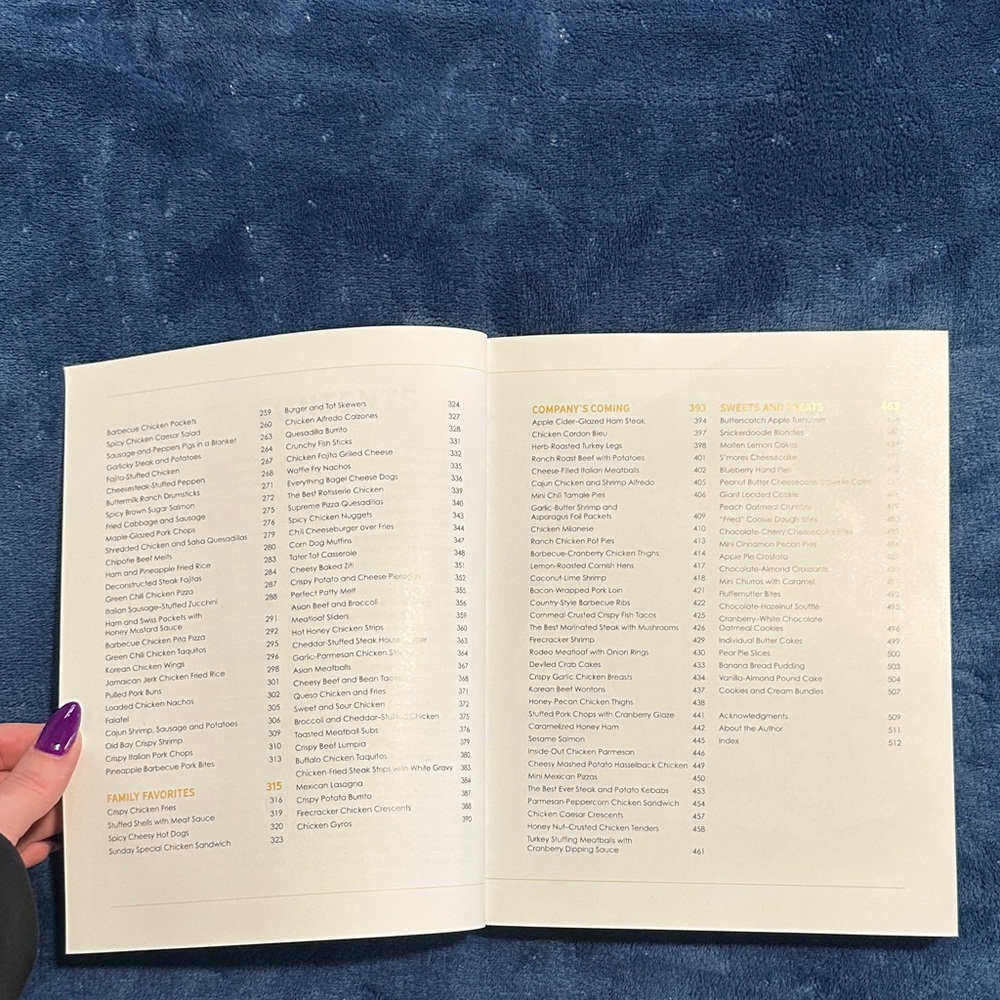 Barbecue Chicken Pockets 259
Spicy Chicken Caesar Salad 260
Sausage-and-Peppers Pigs in a Blanket 263
Garlicky Steak and Potatoes 264
Fajita-Stuffed Chicken 267
Cheesesteak-Stuffed Peppers 268
Buttermilk Ranch Drumsticks 271
Spicy Brown Sugar Salmon 272
Fried Cabbage and Sausage 275
Maple-Glazed Pork Chops 276
Shredded Chicken and Salsa Quesadillas 279
Chipotle Beef Melts 280
Ham and Pineapple Fried Rice 283
Deconstructed Steak Fajitas 284
Green Chili Chicken Pizza 287
Italian Sausage-Stuffed Zucchini 288
Ham and Swiss Pockets with
Honey Mustard Sauce 291
Barbecue Chicken Pita Pizza 292
Green Chili Chicken Taquitos 295
Korean Chicken Wings 296
Jamaican Jerk Chicken Fried Rice 298
Pulled Pork Buns 301
Loaded Chicken Nachos 302
Falafel 305
Cajun Shrimp, Sausage and Potatoes 306
Old Bay Crispy Shrimp 309
Crispy Italian Pork Chops 310
Pineapple Barbecue Pork Bites 313
FAMILY FAVORITES 315
Crispy Chicken Fries 316
Stuffed Shells with Meat Sauce 319
Spicy Cheesy Hot Dogs 320
Sunday Special Chicken Sandwich 323
Burger and Tot Skewers 324
Chicken Alfredo Calzones 327
Quesadilla Burrito 328
Crunchy Fish Sticks 331
Chicken Fajita Grilled Cheese 332
Waffle Fry Nachos 335
Everything Bagel Cheese Dogs 336
The Best Rotisserie Chicken 339
Supreme Pizza Quesadillas 340
Spicy Chicken Nuggets 343
Chili Cheeseburger over Fries 344
Corn Dog Muffins 347
Tater Tot Casserole 348
Cheesy Baked Ziti 351
Crispy Potato and Cheese Pierogies 352
Perfect Patty Melt 355
Asian Beef and Broccoli 356
Meatloaf Sliders 359
Hot Honey Chicken Strips 360
Cheddar-Stuffed Steak House 363
Garlic-Parmesan Chicken 364
Asian Meatballs 367
Cheesy Beef and Bean 368
Queso Chicken and Fries 371
Sweet and Sour Chicken 372
Broccoli and Cheddar-Stuffed Chicken 375
Toasted Meatball Subs 376
Crispy Beef Lumpia 379
Buffalo Chicken Taquitos 380
Chicken-Fried Steak Strips with White Gravy 383
Mexican Lasagna 384
Crispy Potato Burrito 387
Firecracker Chicken Crescents 388
Chicken Gyros 390
COMPANY'S COMING 393
Apple Cider-Glazed Ham Steak 394
Chicken Cordon Bleu 397
Herb-Roasted Turkey Legs 398
Ranch Roast Beef with Potatoes 401
Cheese-Filled Italian Meatballs 402
Cajun Chicken and Shrimp Alfredo 405
Mini Chili Tamale Pies 406
Garlic-Butter Shrimp and
Asparagus Foil Packets 409
Chicken Milanese 410
Ranch Chicken Pot Pies 413
Barbecue-Cranberry Chicken Thighs 414
Lemon-Roasted Cornish Hens 417
Coconut-Lime Shrimp 418
Bacon-Wrapped Pork Loin 421
Country-Style Barbecue Ribs 422
Cornmeal-Crusted Crispy Fish Tacos 425
The Best Marinated Steak with Mushrooms 426
Firecracker Shrimp 429
Rodeo Meatloaf with Onion Rings 430
Deviled Crab Cakes 433
Crispy Garlic Chicken Breasts 434
Korean Beef Wontons 437
Honey-Pecan Chicken Thighs 438
Stuffed Pork Chops with Cranberry Glaze 441
Caramelized Honey Ham 442
Sesame Salmon 445
Inside-Out Chicken Parmesan 446
Cheesy Mashed Potato Hasselback Chicken 449
Mini Mexican Pizzas 450
The Best Ever Steak and Potato Kebabs 453
Parmesan-Peppercorn Chicken Sandwich 454
Chicken Caesar Crescents 457
Honey Nut-Crusted Chicken Tenders 458
Turkey Stuffing Meatballs with
Cranberry Dipping Sauce 461
SWEETS AND TREATS 463
Butterscotch Apple Turnovers
Snickerdoodle Blondies
Molten Lemon Cakes
S'mores Cheesecake
Blueberry Hand Pies
Peanut Butter Cheesecake Brownie Cake
Giant Loaded Cookie
Peach Oatmeal Crumble
"Fried" Cookie Dough Bites
Chocolate-Cherry Cheesecake Bites
Mini Cinnamon Pecan Pies
Apple Pie Crostata
Chocolate-Almond Croissants
Mini Churros with Caramel
Fluffernutter Bites
Chocolate-Hazelnut Soufflé 495
Cranberry-White Chocolate
Oatmeal Cookies 496
Individual Butter Cakes 499
Pear Pie Slices 500
Banana Bread Pudding 503
Vanilla-Almond Pound Cake 504
Cookies and Cream Bundles 507
Acknowledgments 509
About the Author 511
Index 512